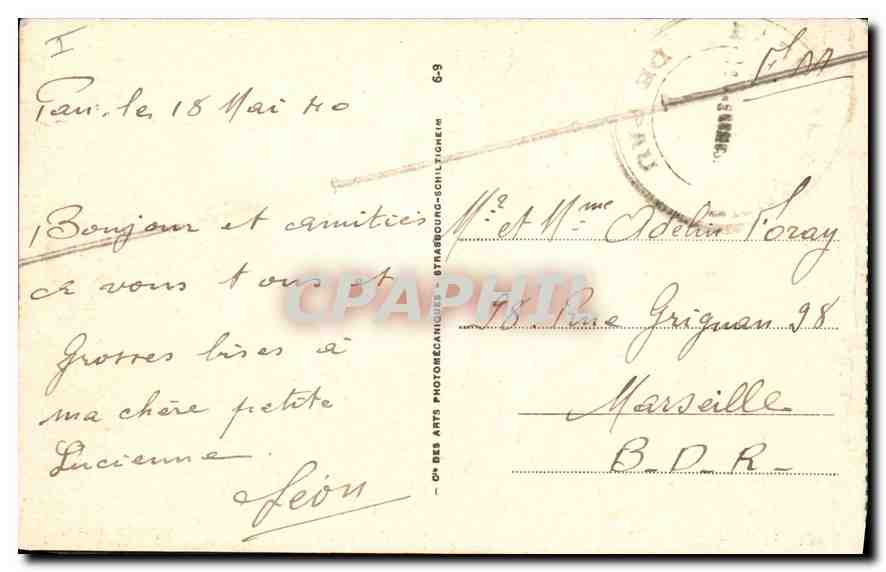 I
Pau. le 18 Mai 40
Bonjour et amitiés
à vous tous et
Grosses bises à
ma chère petite
Lucienne.
Léon
6-9
— Cie DES ARTS PHOTOMÉCANIQUES - STRASBOURG-SCHILTIGHEIM
F.M
DE
Mr et Mme Odelin
98. Rue Grignan 98
Marseille
B-D-R-
CPAPHIL